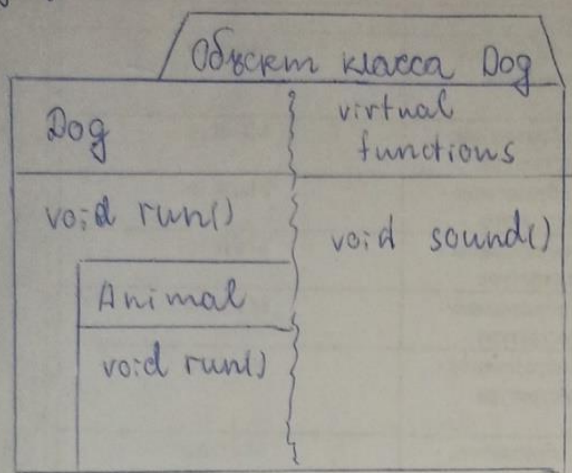 Объект класса Dog
Dog
virtual
functions
void run()
void sound()
Animal
void run()